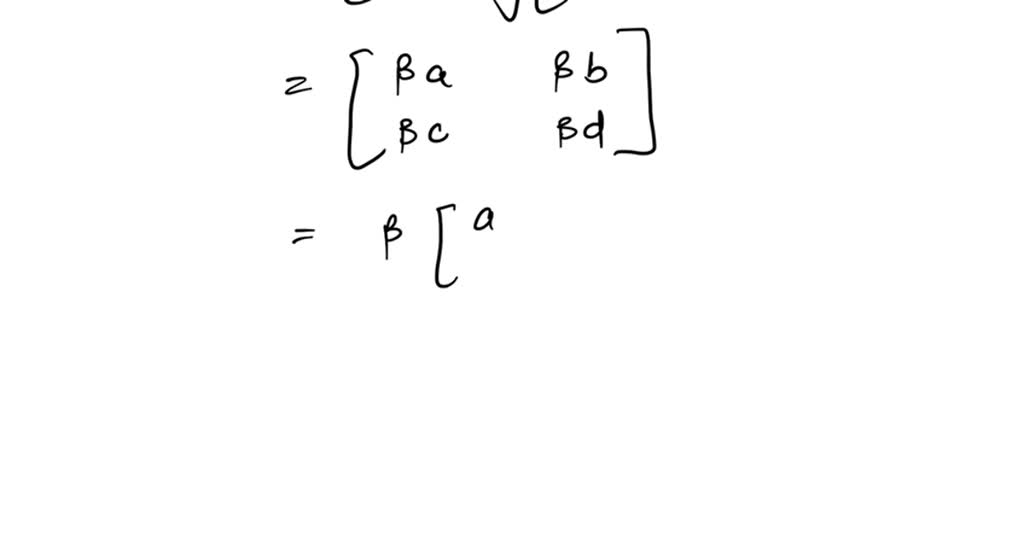 = [ βa βb ]
βc βd
= β [ a